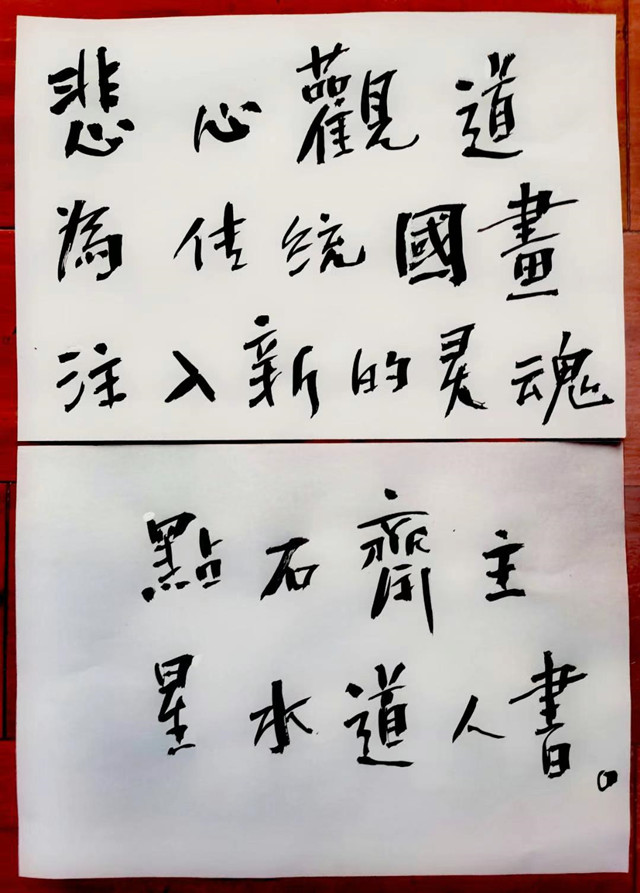 悲心觀道
為传统國畫
注入新的灵魂
點石齋主
星水道人書。